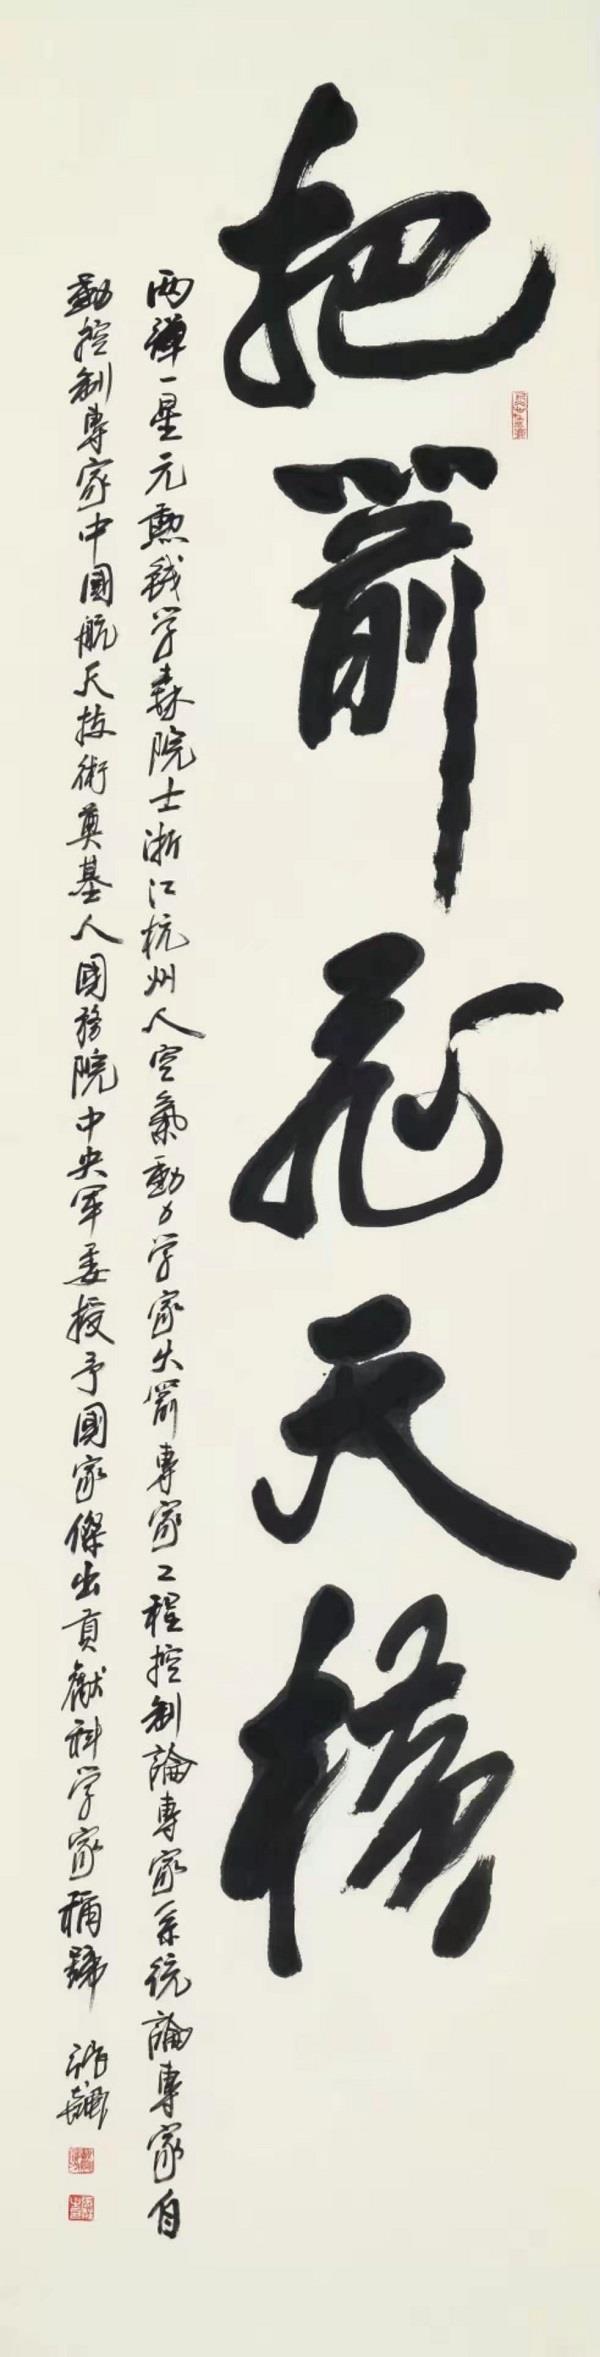 把箭飛天横
两彈一星元勲錢学森院士浙江杭州人空氣動力学家火箭專家工程控制論專家系统論專家自
動控制專家中國航天技術奠基人國務院中央軍委授予國家傑出貢獻科学家稱號